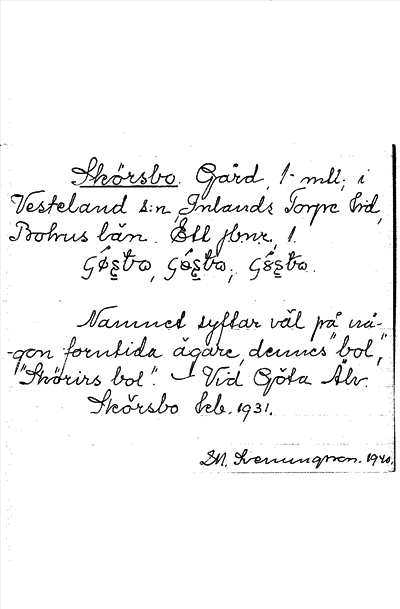 Skörsbo. Gård, 1 mtl; i
Vesteland s:n, Inlands Torpe hd,
Bohus län. Ett jbnr, 1.
Namnet syftar väl på nå-
-gon forntida ägare, dennes "bol",
"Skörirs bol". – Vid Göta Älv.
Skörsbo keb. 1931.
1940.